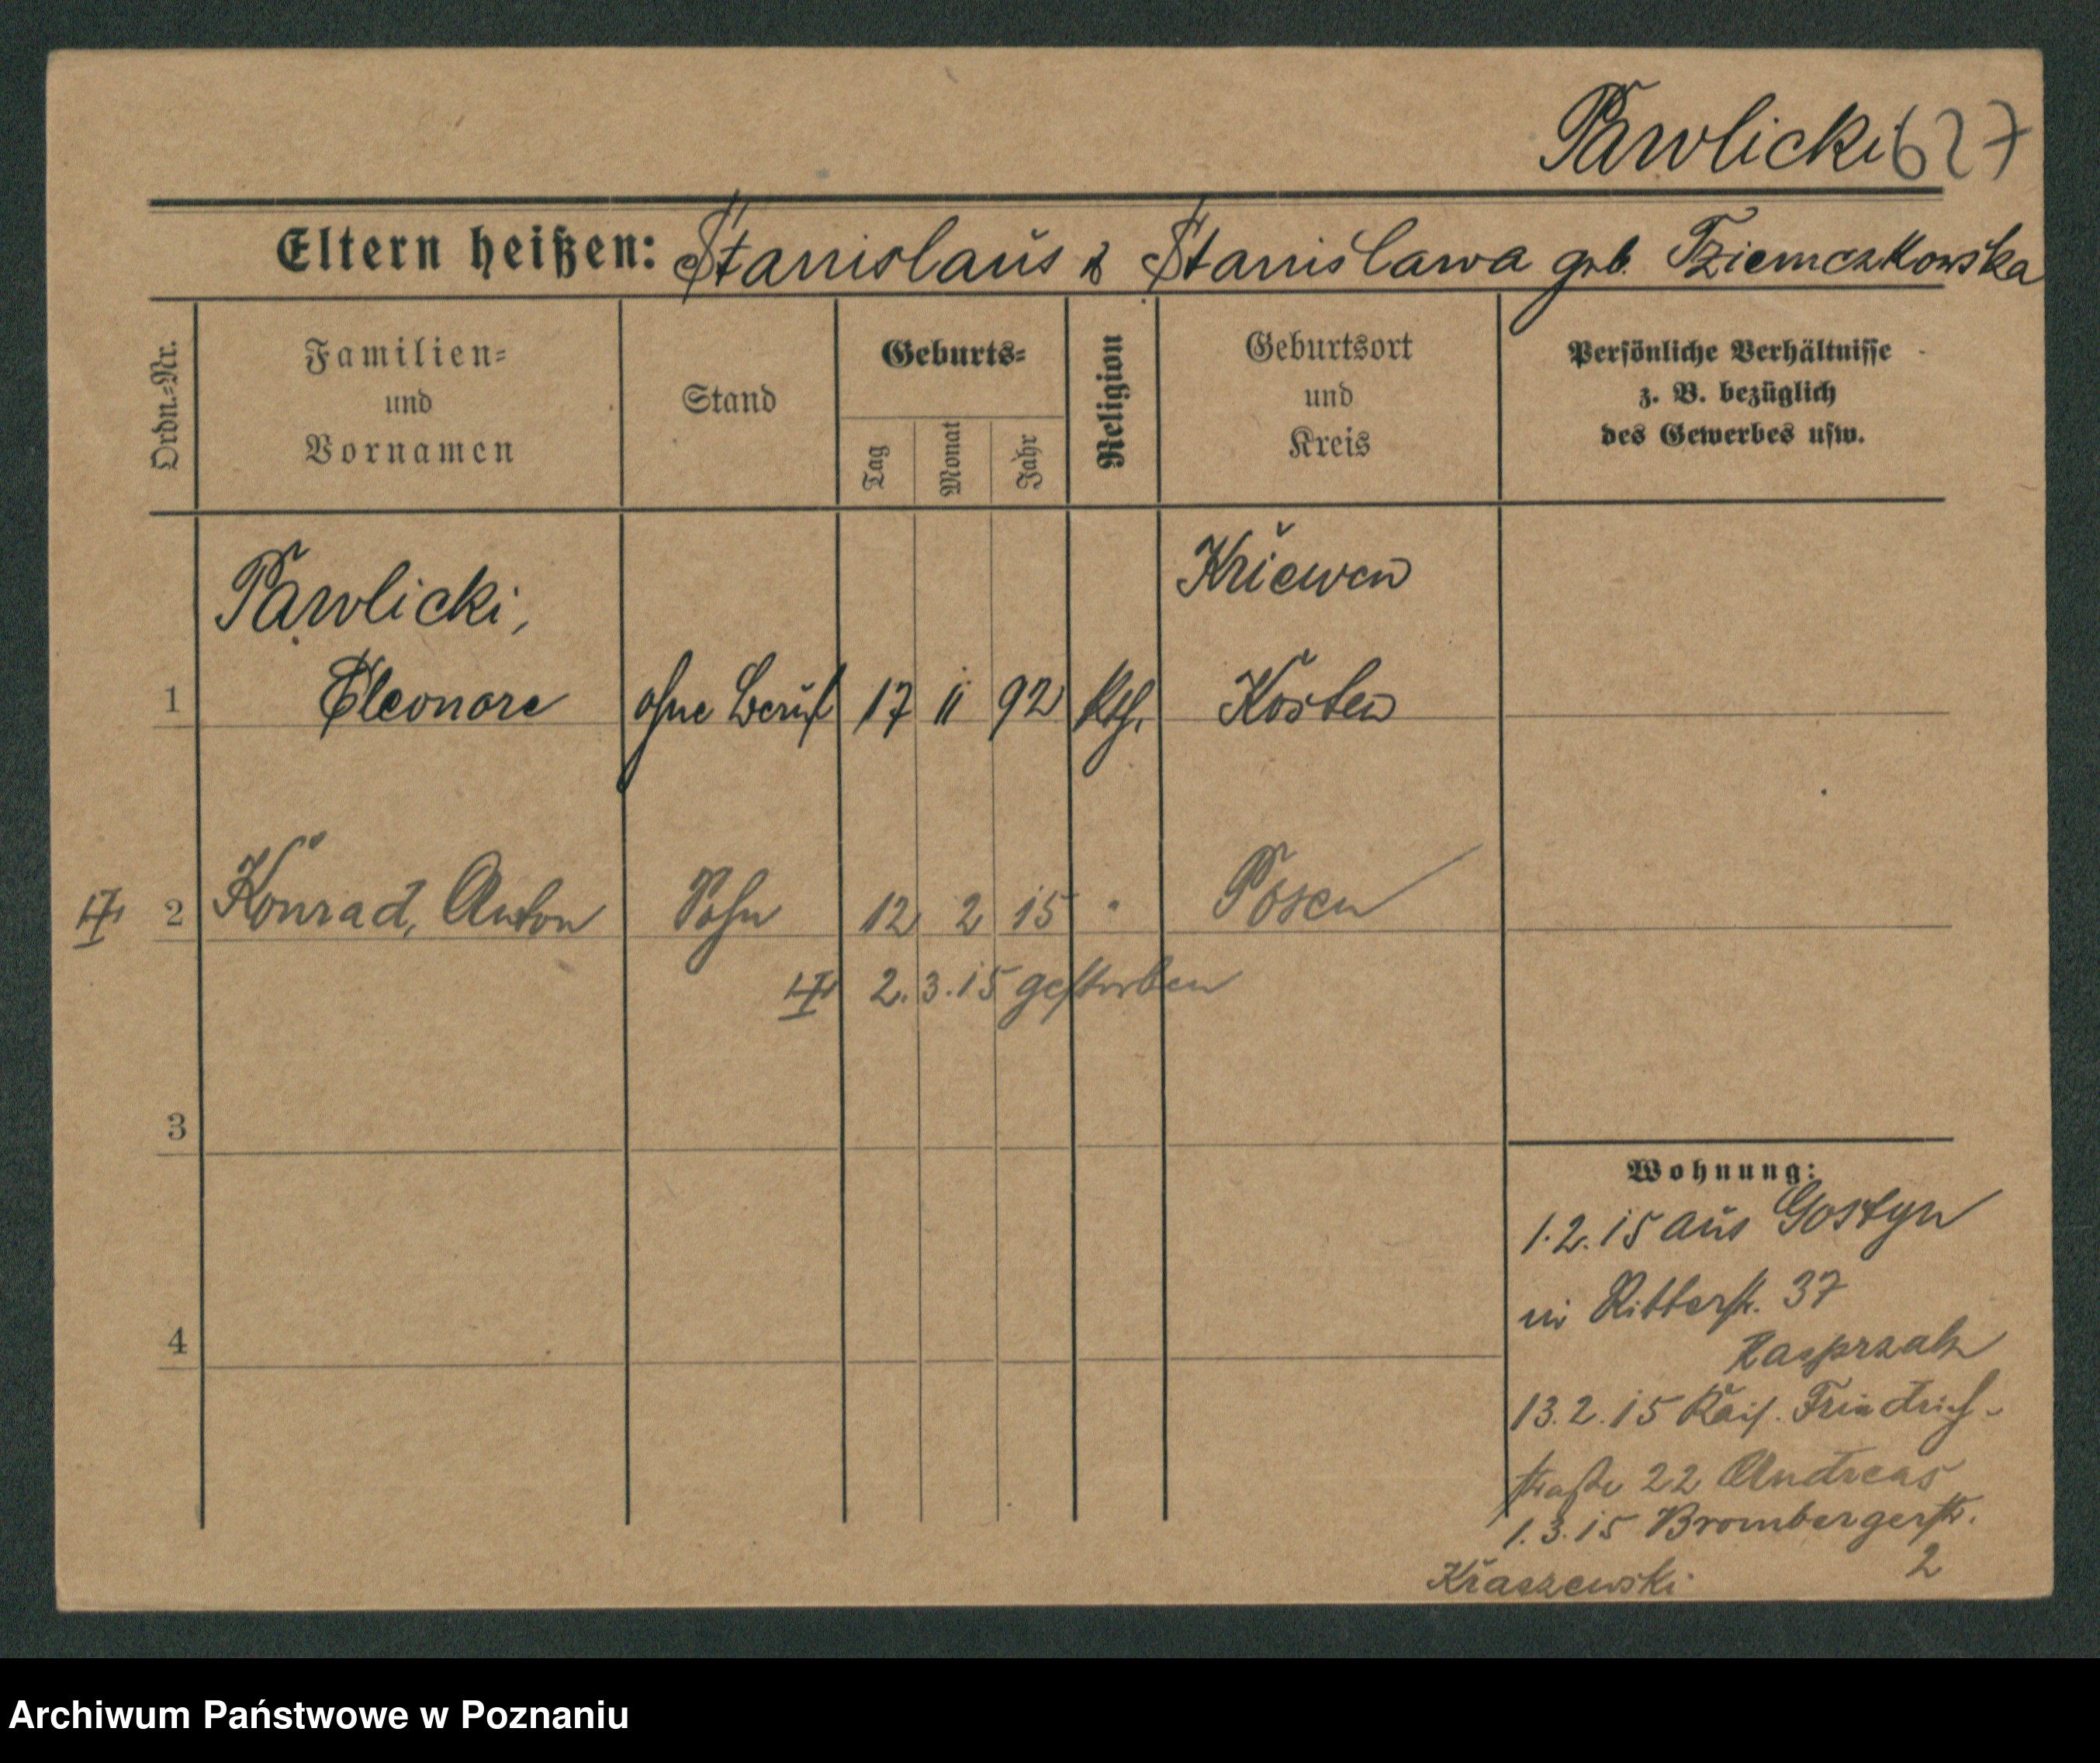 Pawlicki 627
Eltern heißen: Stanislaus & Stanislawa geb. Tziemczkowska
Ordn.=Nr.
Familien=
und
Vornamen
Stand
Geburts=
Tag
Monat
Jahr
Religion
Geburtsort
und
Kreis
Persönliche Verhältnisse
z. B. bezüglich
des Gewerbes usw.
Pawlicki, Kriewen
1 Eleonore ohne Beruf 17 11 92 kth. Kosten
2 Konrad, Anton Sohn 12 2 15 " Posen
2. 3. 15 gestorben
3
Wohnung:
1. 2. 15 aus Gostyn
in Ritterstr. 37
Kasprzak
4
13. 2. 15 Kais. Friedrich-
straße 22 Andreas
1. 3. 15 Brombergerstr.
2
Kraszewski
Archiwum Państwowe w Poznaniu